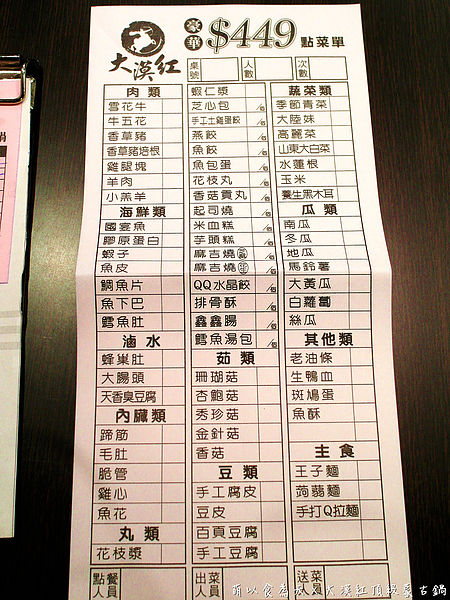 大漠紅
豪華 $449 點菜單
桌號
人數
次數
肉類
雪花牛
牛五花
香草豬
香草豬培根
雞腿塊
羊肉
小羔羊
海鮮類
國宴魚
膠原蛋白
蝦子
魚皮
鯛魚片
魚下巴
鱈魚肚
滷水
蜂巢肚
大腸頭
天香臭豆腐
內臟類
蹄筋
毛肚
脆管
雞心
魚花
丸類
花枝漿
蝦仁漿
芝心包 /個
手工土雞蛋餃 /個
燕餃 /個
魚餃 /個
魚包蛋 /個
花枝丸 /個
香菇貢丸 /個
起司燒 /個
米血糕 /個
芋頭糕 /個
麻吉燒 /個
麻吉燒 /個
QQ水晶餃 /個
排骨酥
鑫鑫腸 /個
鱈魚湯包 /個
茹類
珊瑚菇
杏鮑菇
秀珍菇
金針菇
香菇
豆類
手工腐皮
豆皮
百頁豆腐
手工豆腐
蔬菜類
季節青菜
大陸妹
高麗菜
山東大白菜
水蓮根
玉米
養生黑木耳
瓜類
南瓜
冬瓜
地瓜
馬鈴薯
大黃瓜
白蘿蔔
絲瓜
其他類
老油條
生鴨血
斑鳩蛋
魚酥
主食
王子麵
蒟蒻麵
手打Q拉麵
點餐人員
出菜人員
送菜人員